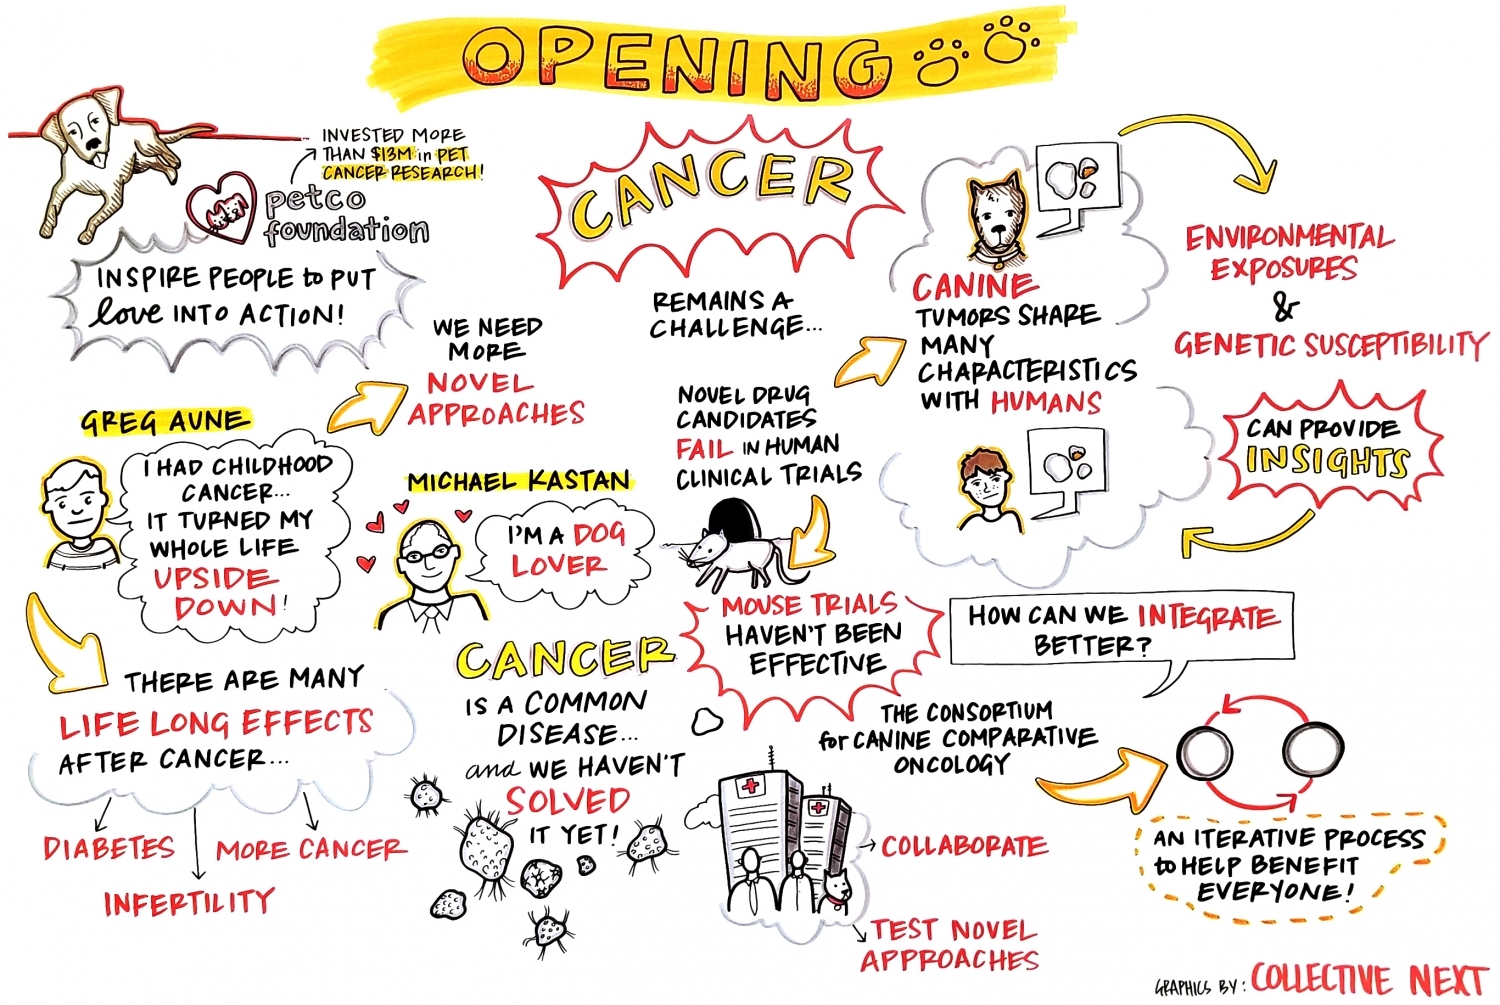 OPENING
INVESTED MORE
THAN $13M in PET
CANCER RESEARCH!
petco
foundation
INSPIRE PEOPLE to PUT
love INTO ACTION!
GREG AUNE
I HAD CHILDHOOD
CANCER...
IT TURNED MY
WHOLE LIFE
UPSIDE
DOWN!
WE NEED
MORE
NOVEL
APPROACHES
THERE ARE MANY
LIFE LONG EFFECTS
AFTER CANCER...
DIABETES
INFERTILITY
MORE CANCER
MICHAEL KASTAN
I'M A DOG
LOVER
CANCER
IS A COMMON
DISEASE...
and WE HAVEN'T
SOLVED
IT YET!
CANCER
REMAINS A
CHALLENGE...
NOVEL DRUG
CANDIDATES
FAIL IN HUMAN
CLINICAL TRIALS
MOUSE TRIALS
HAVEN'T BEEN
EFFECTIVE
CANINE
TUMORS SHARE
MANY
CHARACTERISTICS
WITH HUMANS
ENVIRONMENTAL
EXPOSURES
&
GENETIC SUSCEPTIBILITY
CAN PROVIDE
INSIGHTS
HOW CAN WE INTEGRATE
BETTER?
THE CONSORTIUM
for CANINE COMPARATIVE
ONCOLOGY
COLLABORATE
TEST NOVEL
APPROACHES
AN ITERATIVE PROCESS
to HELP BENEFIT
EVERYONE!
GRAPHICS BY: COLLECTIVE NEXT